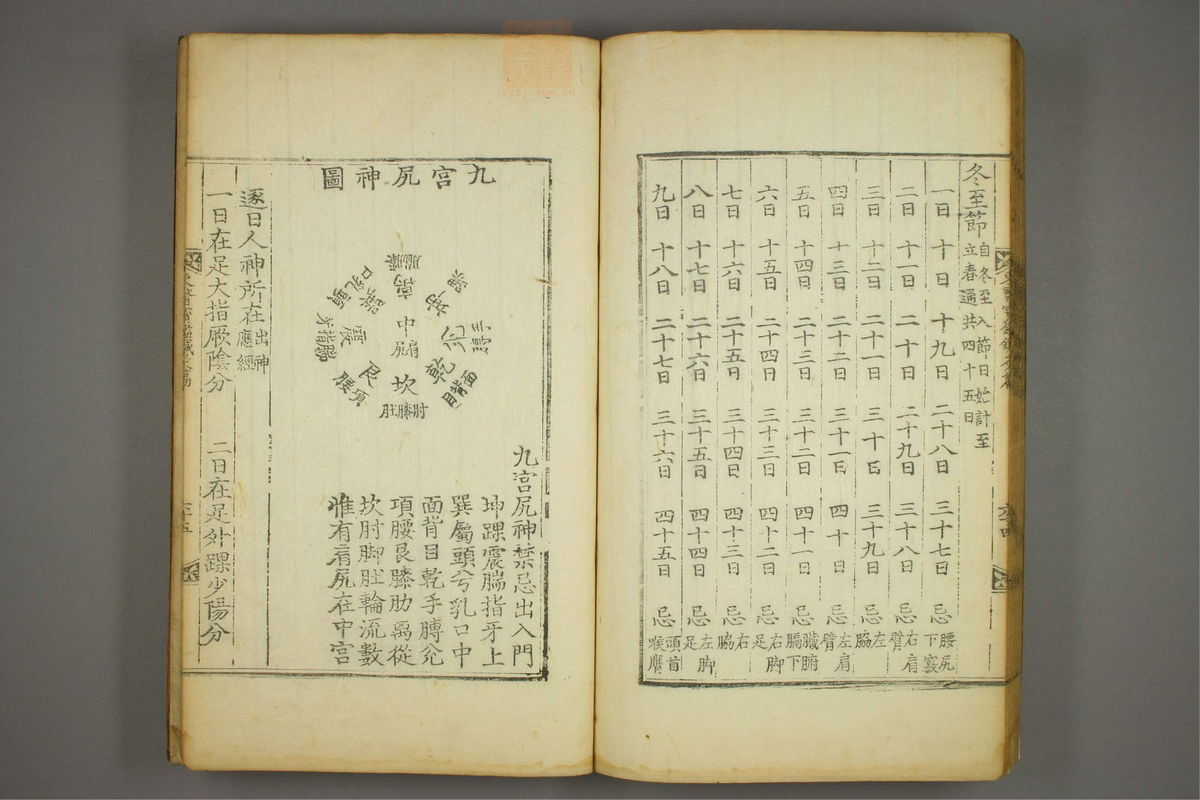 冬至節 自冬至入節日始計至立春通共四十五日
一日 十日 十九日 二十八日 三十七日 忌 腰尻下竅
二日 十一日 二十日 二十九日 三十八日 忌 右肩臂
三日 十二日 二十一日 三十日 三十九日 忌 左脇
四日 十三日 二十二日 三十一日 四十日 忌 左肩臂
五日 十四日 二十三日 三十二日 四十一日 忌 臓腑膈下
六日 十五日 二十四日 三十三日 四十二日 忌 右脚足
七日 十六日 二十五日 三十四日 四十三日 忌 右脇
八日 十七日 二十六日 三十五日 四十四日 忌 左脚足
九日 十八日 二十七日 三十六日 四十五日 忌 頭首喉膺
九宮尻神圖
中 肩尻
坎 肘膝肚
艮 項腰
震 牙指腨
乾 面背目
兊
九宮尻神禁忌出入門
坤踝震腨指牙上
巽屬頭兮乳口中
面背目乾手膊兊
項腰艮膝肋离從
坎肘脚肚輪流數
惟有肩尻在中宮
逐日人神所在 出神應經
一日在足大指厥陰分 二日在足外踝少陽分